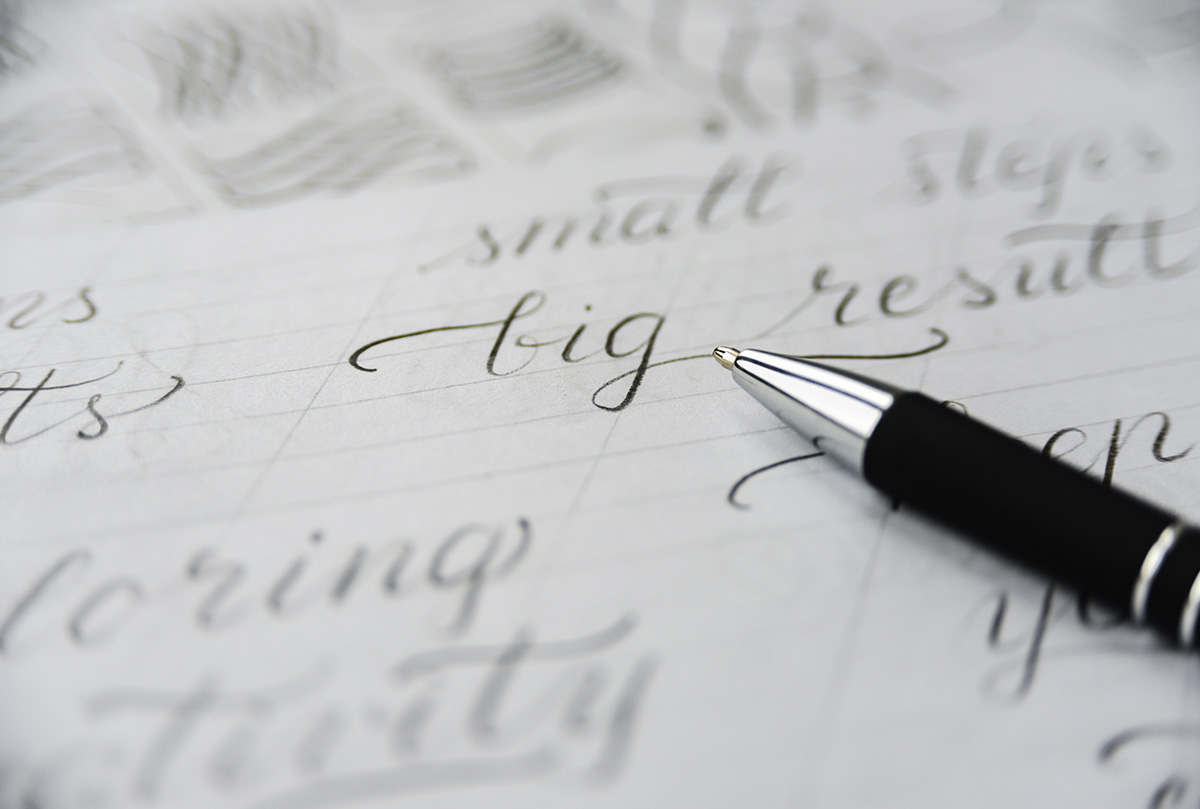 small steps
big result
ns
ts
loring
tivity